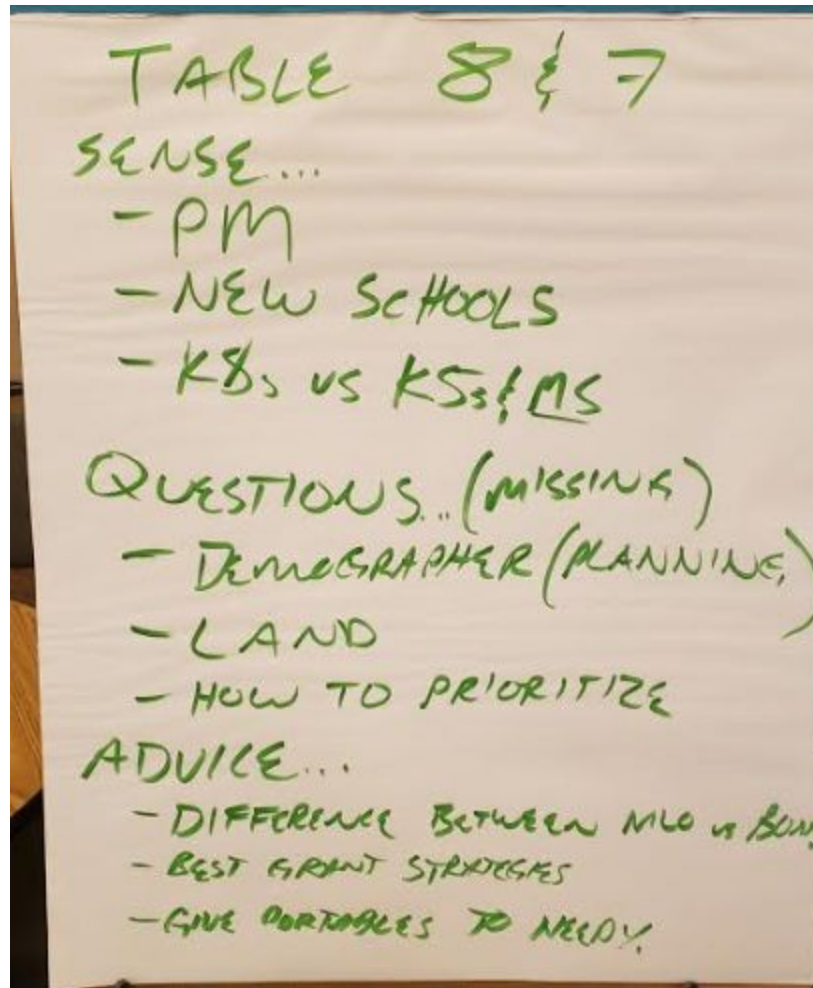 TABLE 8 & 7
SENSE...
- PM
- NEW SCHOOLS
- K8s vs K5s & MS
QUESTIONS... (MISSING)
- DEMOGRAPHER (PLANNING)
- LAND
- HOW TO PRIORITIZE
ADVICE...
- DIFFERENCE BETWEEN MLO vs BON
- BEST GRANT STRATEGIES
- GIVE PORTABLES TO NEEDY.